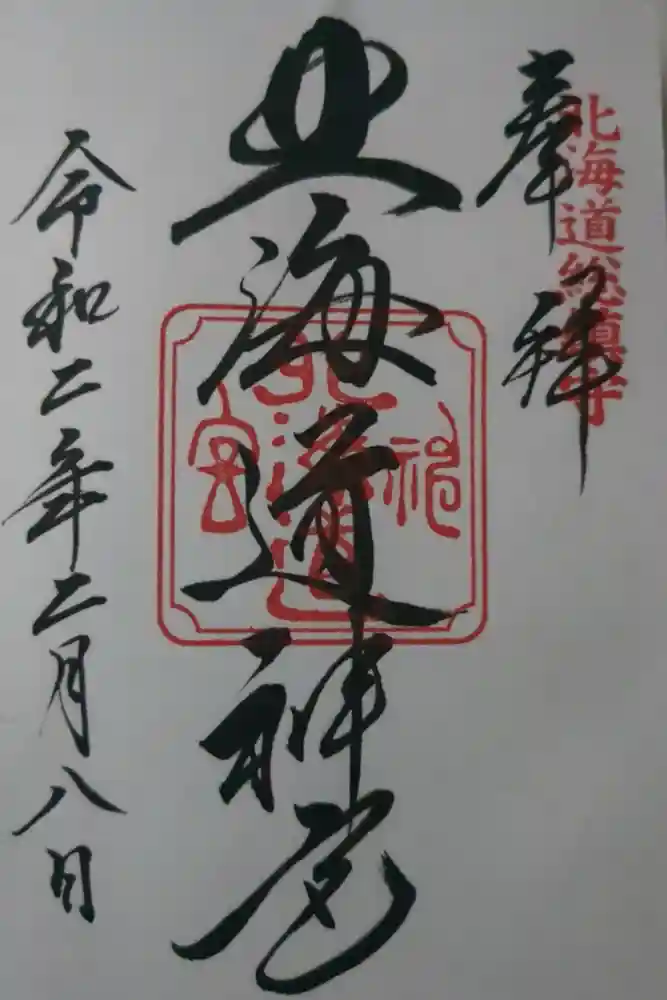 奉拝
北海道総鎮守
北海道神宮
北海道神宮
令和二年二月八日